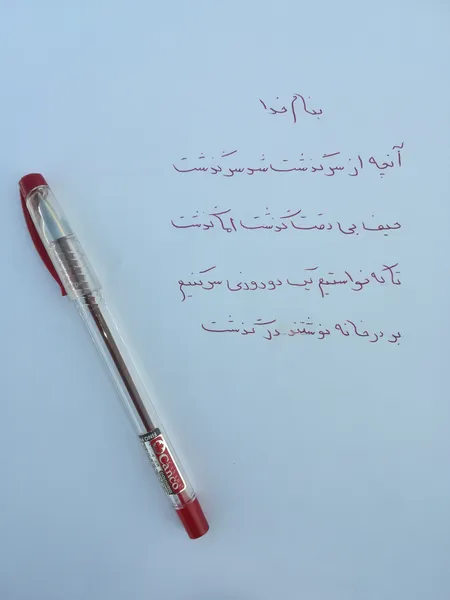 بنام خدا
آنچه از سر گذشت شد سرگذشت
حیف بی دقت گذشت اما گذشت
تا که خواستیم یک دو روزی سر کنیم
بر در خانه نوشتند در گذشت
Canco